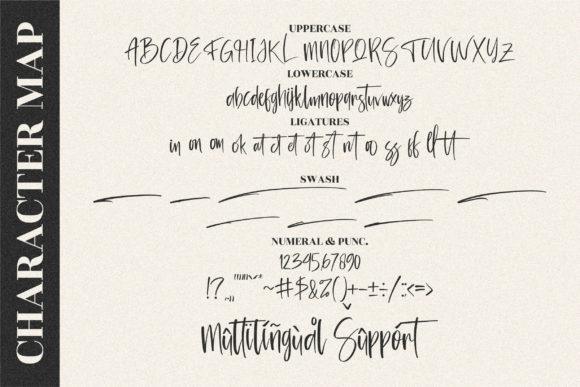 CHARACTER MAP
UPPERCASE
ABCDEFGHIJKL MNOPQRSTUVWXYZ
LOWERCASE
abcdefghijklmnopqrstuvwxyz
LIGATURES
in on om ok at ct et st rt oo ss ff lt tt
SWASH
NUMERAL & PUNC.
1234567890
!? ~#$&%()+-±÷/:;<=>
Mùltilíñgùål Sûppórt